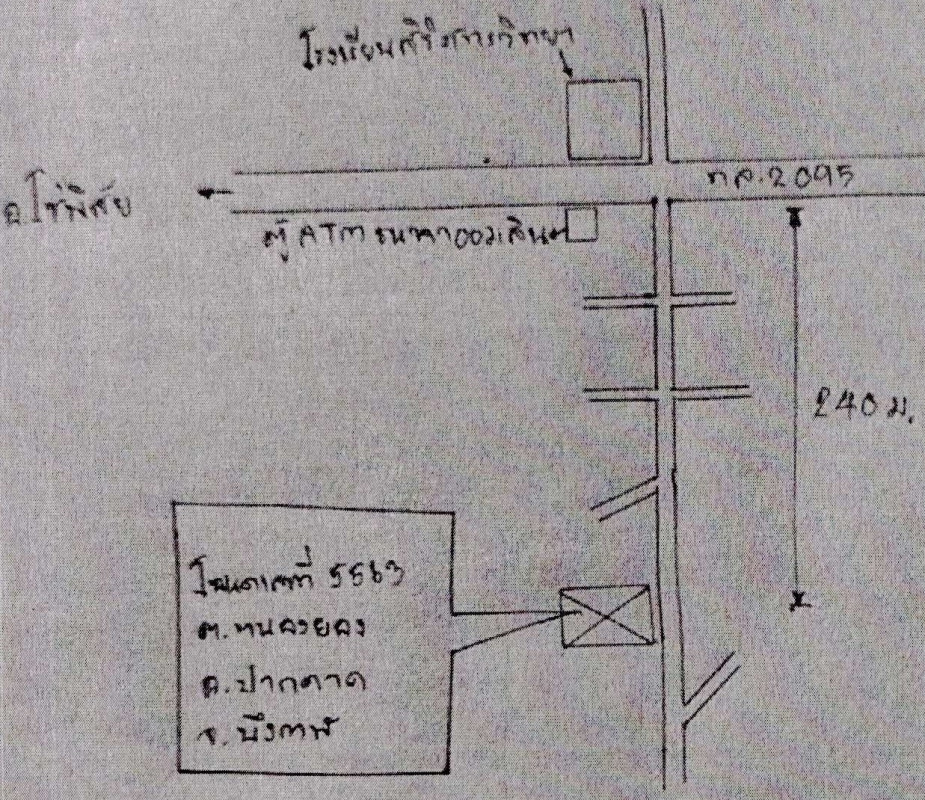 โรงเรียนสิริสารวิทยา
ทล.2095
อ.โซ่พิสัย
ตู้ ATM ธนาคารออมสิน
240 ม.
โฉนดเลขที่ 5563
ต.หนองยอง
อ.ปากคาด
จ.บึงกาฬ